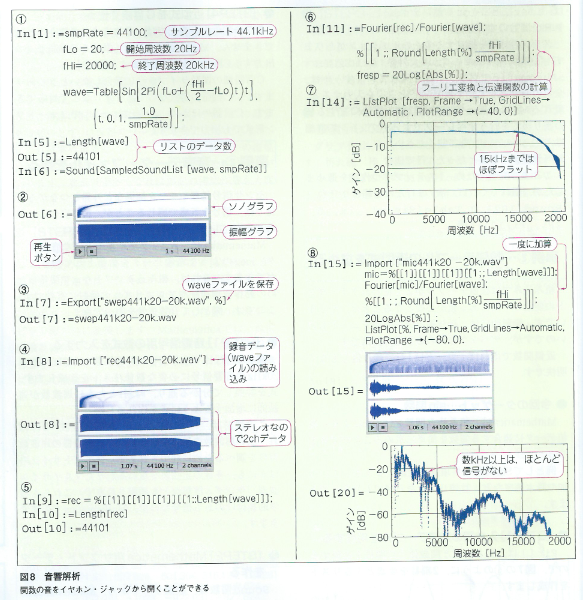 ①
In[1]:=smpRate = 44100; サンプルレート 44.1kHz
fLo = 20; 開始周波数 20Hz
fHi= 20000; 終了周波数 20kHz
wave=Table[Sin[2Pi(fLo+(fHi/2−fLo)t)t],
{t, 0, 1, 1.0/smpRate}];
In[5]:=Length[wave]
Out[5]:=44101
リストのデータ数
In[6]:=Sound[SampledSoundList [wave, smpRate]]
②
Out[6]:=
ソノグラフ
振幅グラフ
再生
ボタン
1 s 44100 Hz
③
waveファイルを保存
In[7]:=Export["swep441k20-20k.wav", %]
Out[7]:=swep441k20-20k.wav
④
In[8]:=Import ["rec441k20-20k.wav"]
録音データ
(waveファ
イル)の読み
込み
Out[8]:=
ステレオなの
で2chデータ
1.07 s 44100 Hz 2 channels
⑤
In[9]:=rec = %[[1]][[1]][[1]][[1::Length[wave]]];
In[10]:=Length[rec]
Out[10]:=44101
⑥
In[11]:=Fourier[rec]/Fourier[wave];
%[[1 ;; Round[Length[%] fHi/smpRate]]];
fresp = 20Log[Abs[%]];
フーリエ変換と伝達関数の計算
⑦
In[14]:= ListPlot [fresp, Frame →True, GridLines→
Automatic , PlotRange →{-40, 0}]
ゲイン [dB]
0
-10
-20
-30
-40
15kHzまでは
ほぼフラット
0 5000 10000 15000 2000
周波数 [Hz]
⑧
一度に加算
In[15]:= Import ["mic441k20 -20k.wav"]
mic=%[[1]][[1]][[1]][[1 ;; Length[wave]]];
Fourier[mic]/Fourier[wave];
%[[1 ;; Round[Length[%] fHi/smpRate]]];
20LogAbs[%]] ;
ListPlot[%, Frame→True, GridLines→Automatic,
PlotRange →{-80, 0}.
Out[15]=
1.06 s 44100 Hz 2 channels
Out[20]=
ゲイン
[dB]
0
-20
-40
-60
-80
数kHz以上は、ほとんど
信号がない
0 5000 10000 1500 2000
周波数 [Hz]
図8 音響解析
関数の音をイヤホン・ジャックから聞くことができる